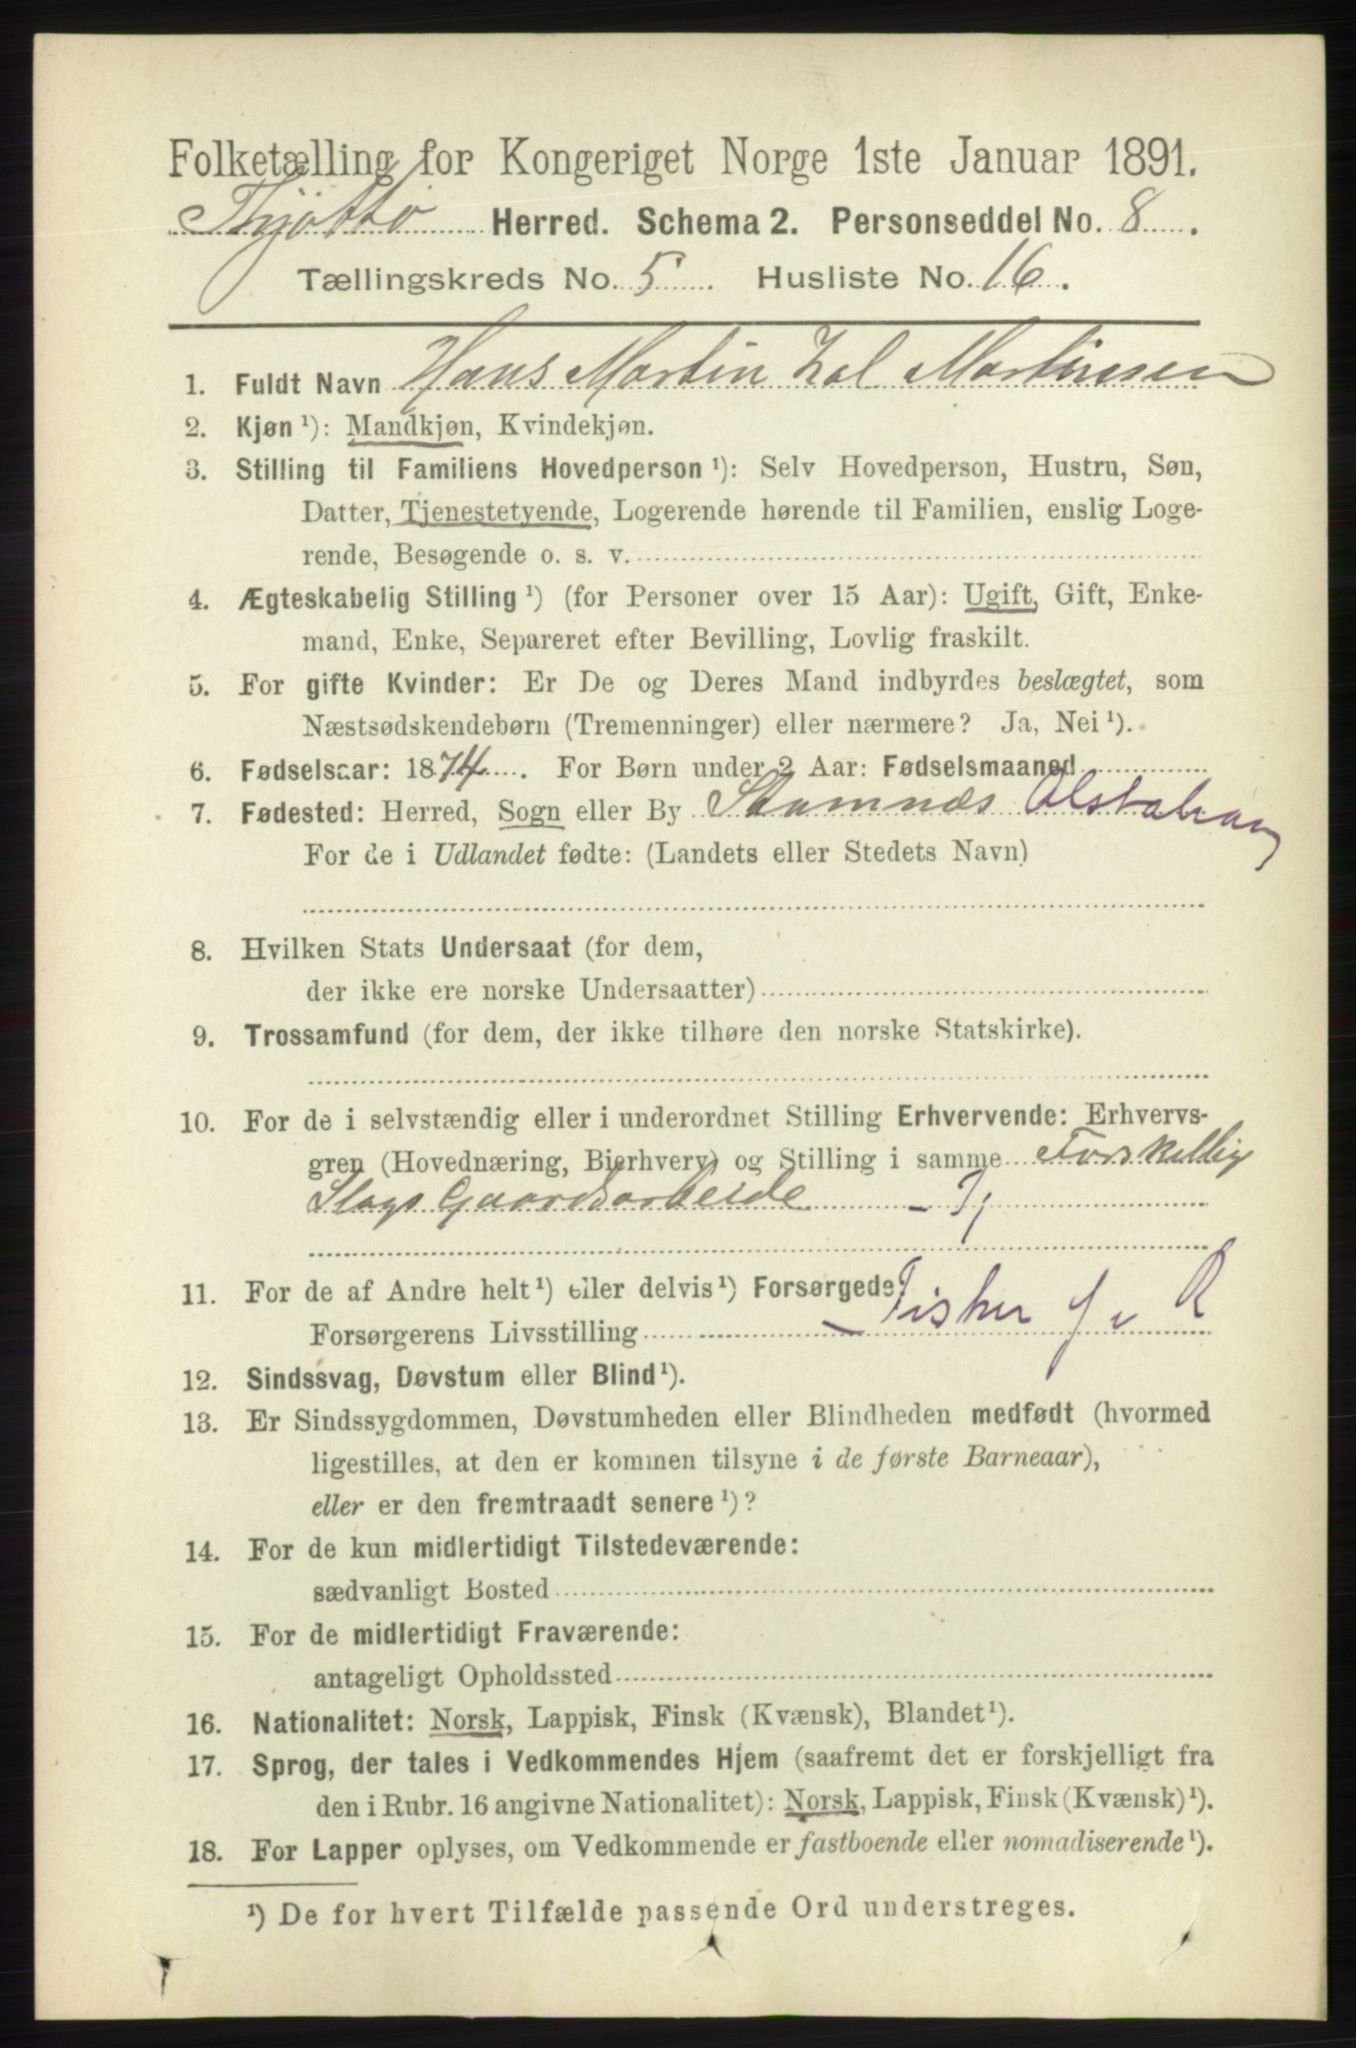 Folketælling for Kongeriget Norge 1ste Januar 1891.
Thjøttø Herred. Schema 2. Personseddel No. 8.
Tællingskreds No. 5. Husliste No. 16.
1. Fuldt Navn Hans Martin Zal Martinsen
2. Kjøn ¹): Mandkjøn, Kvindekjøn.
3. Stilling til Familiens Hovedperson ¹): Selv Hovedperson, Hustru, Søn,
Datter, Tjenestetyende, Logerende hørende til Familien, enslig Loge-
rende, Besøgende o. s. v.
4. Ægteskabelig Stilling ¹) (for Personer over 15 Aar): Ugift, Gift, Enke-
mand, Enke, Separeret efter Bevilling, Lovlig fraskilt.
5. For gifte Kvinder: Er De og Deres Mand indbyrdes beslægtet, som
Næstsødskendebørn (Tremenninger) eller nærmere? Ja, Nei ¹).
6. Fødselsaar: 1874. For Børn under 2 Aar: Fødselsmaaned
7. Fødested: Herred, Sogn eller By Stamnæs Alstahaug
For de i Udlandet fødte: (Landets eller Stedets Navn)
8. Hvilken Stats Undersaat (for dem,
der ikke ere norske Undersaatter)
9. Trossamfund (for dem, der ikke tilhøre den norske Statskirke).
10. For de i selvstændig eller i underordnet Stilling Erhvervende: Erhvervs-
gren (Hovednæring, Bierhverv) og Stilling i samme Forskellig
Slags Gaardsarbeide - Tj
11. For de af Andre helt ¹) eller delvis ¹) Forsørgede:
Forsørgerens Livsstilling - Fisker
12. Sindssvag, Døvstum eller Blind ¹).
13. Er Sindssygdommen, Døvstumheden eller Blindheden medfødt (hvormed
ligestilles, at den er kommen tilsyne i de første Barneaar),
eller er den fremtraadt senere ¹)?
14. For de kun midlertidigt Tilstedeværende:
sædvanligt Bosted
15. For de midlertidigt Fraværende:
antageligt Opholdssted
16. Nationalitet: Norsk, Lappisk, Finsk (Kvænsk), Blandet ¹).
17. Sprog, der tales i Vedkommendes Hjem (saafremt det er forskjelligt fra
den i Rubr. 16 angivne Nationalitet): Norsk, Lappisk, Finsk (Kvænsk) ¹).
18. For Lapper oplyses, om Vedkommende er fastboende eller nomadiserende ¹).
¹) De for hvert Tilfælde passende Ord understreges.